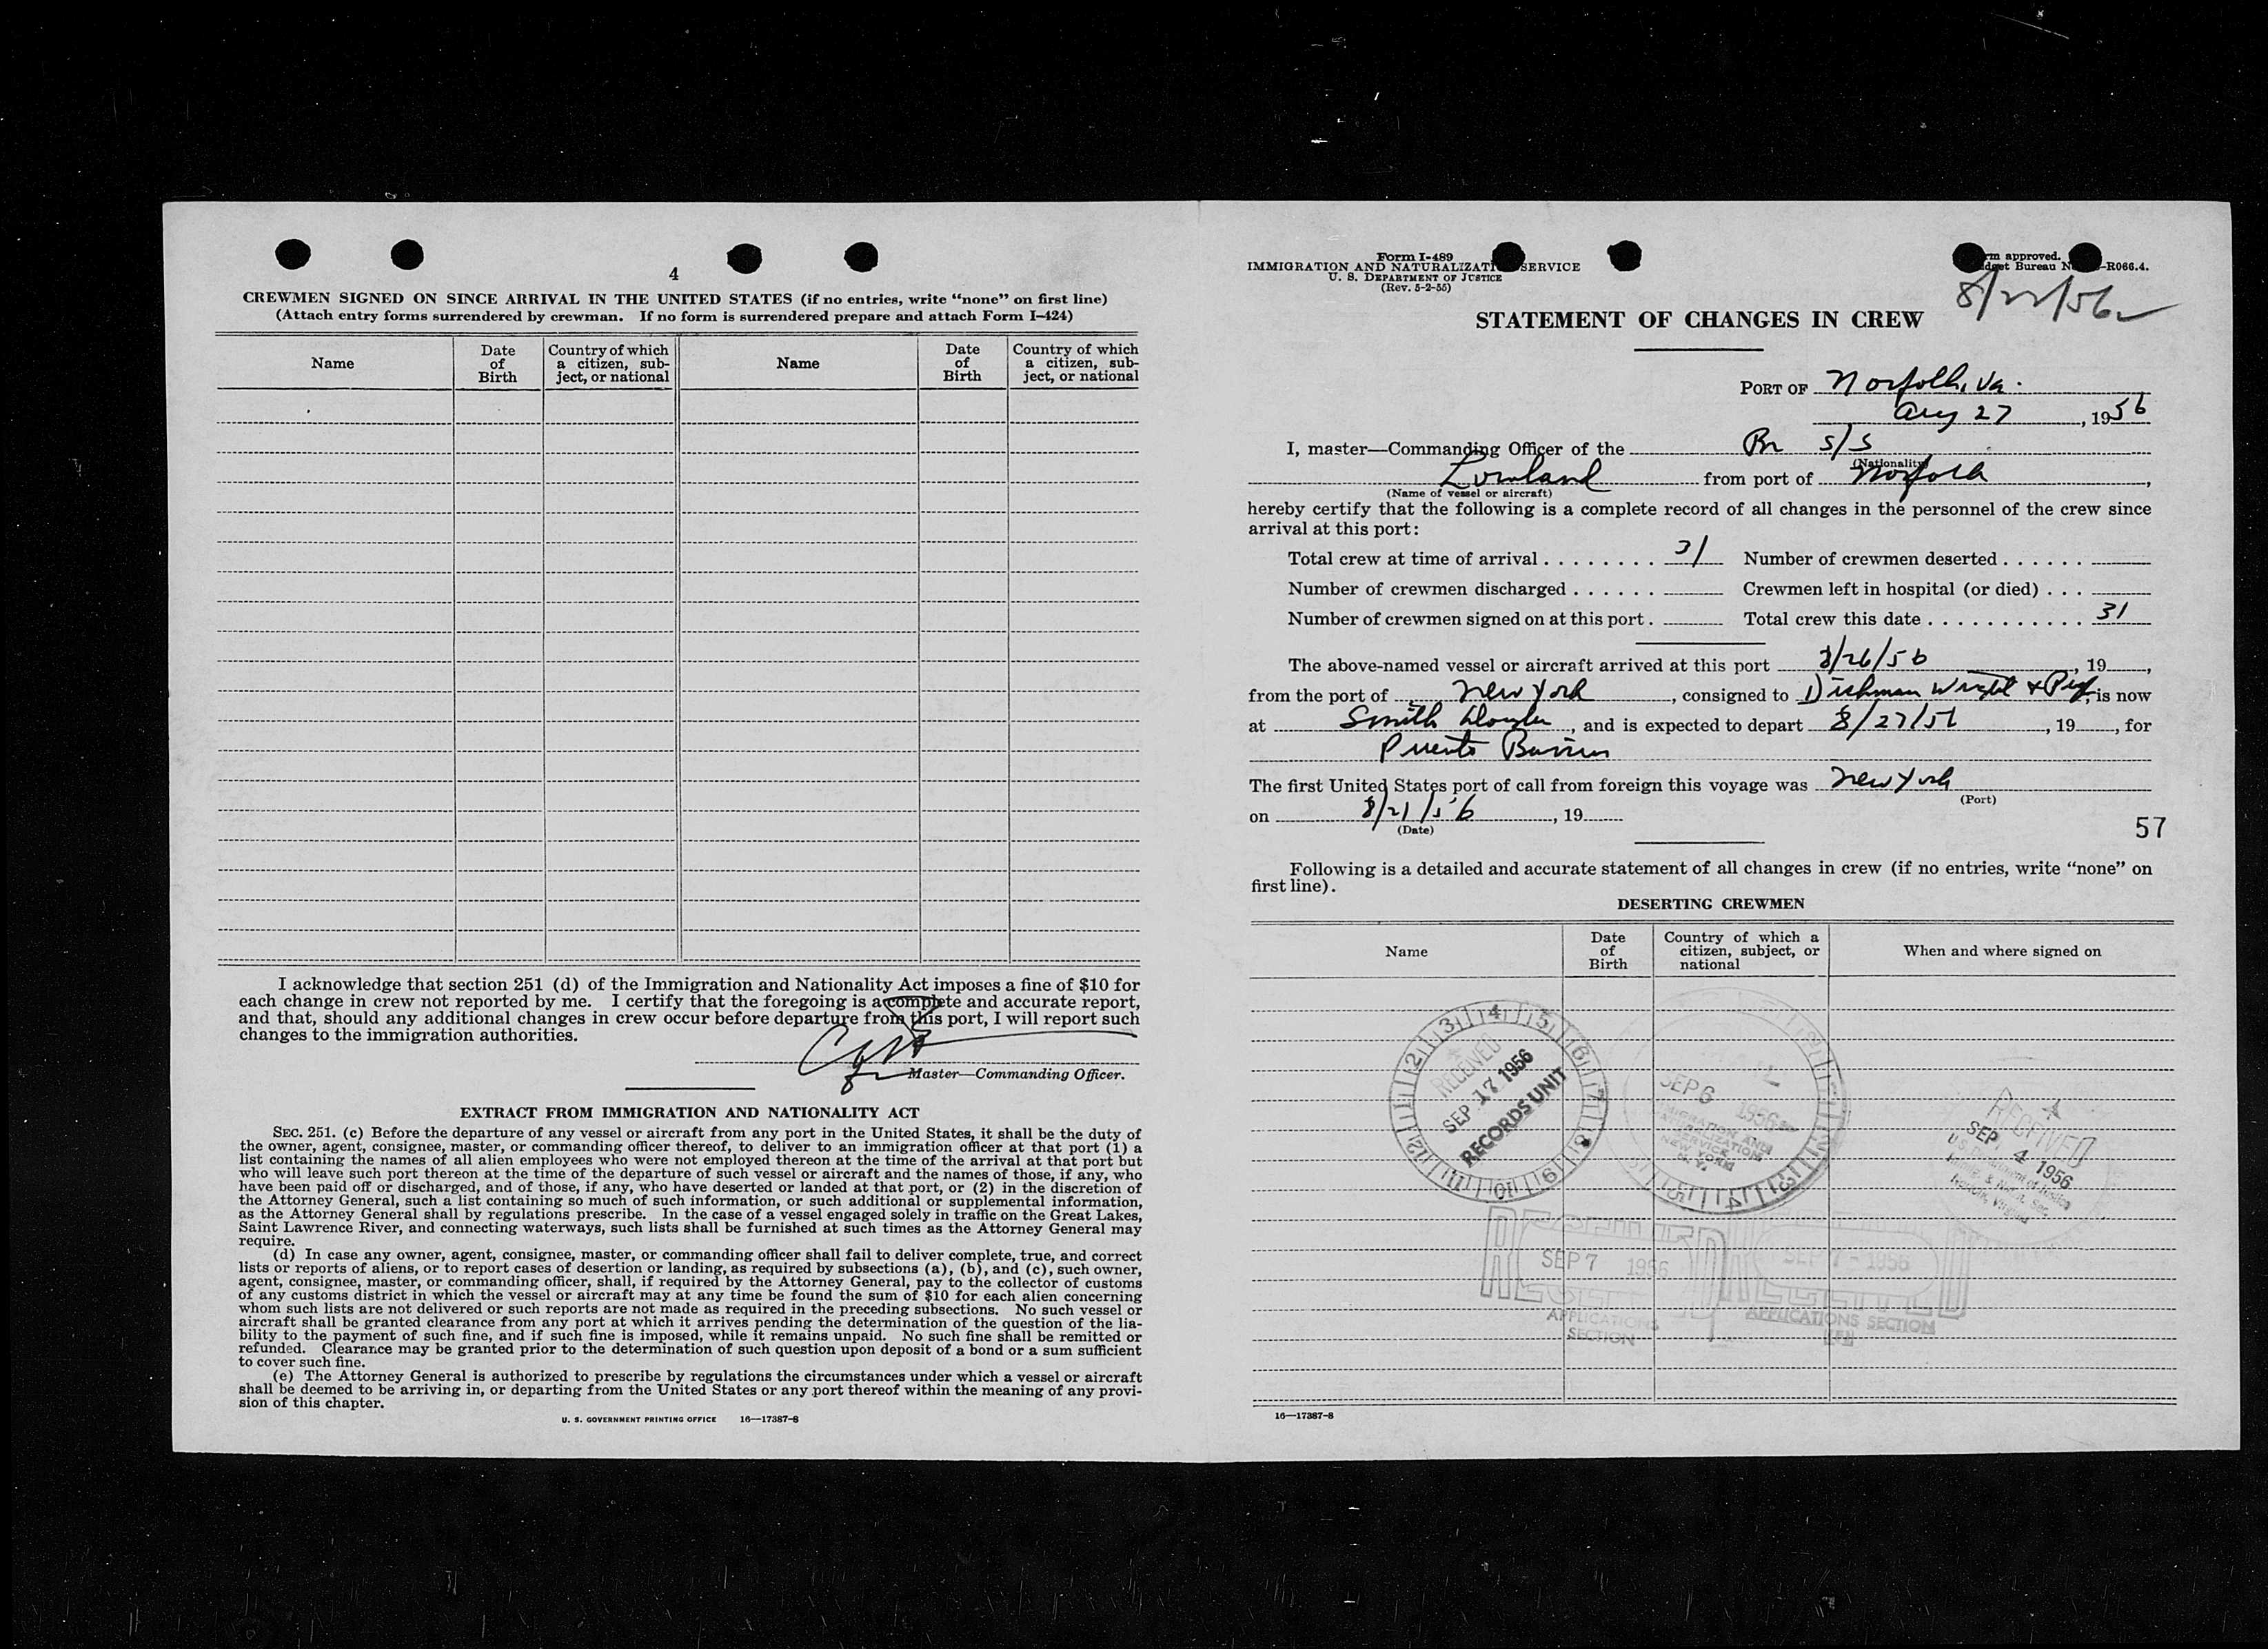 4
CREWMEN SIGNED ON SINCE ARRIVAL IN THE UNITED STATES (if no entries, write “none” on first line)
(Attach entry forms surrendered by crewman. If no form is surrendered prepare and attach Form I–424)
Name
Date of Birth
Country of which a citizen, subject, or national
Name
Date of Birth
Country of which a citizen, subject, or national
I acknowledge that section 251 (d) of the Immigration and Nationality Act imposes a fine of $10 for
each change in crew not reported by me. I certify that the foregoing is a complete and accurate report,
and that, should any additional changes in crew occur before departure from this port, I will report such
changes to the immigration authorities.
Master—Commanding Officer.
EXTRACT FROM IMMIGRATION AND NATIONALITY ACT
SEC. 251. (c) Before the departure of any vessel or aircraft from any port in the United States, it shall be the duty of
the owner, agent, consignee, master, or commanding officer thereof, to deliver to an immigration officer at that port (1) a
list containing the names of all alien employees who were not employed thereon at the time of the arrival at that port but
who will leave such port thereon at the time of the departure of such vessel or aircraft and the names of those, if any, who
have been paid off or discharged, and of those, if any, who have deserted or landed at that port, or (2) in the discretion of
the Attorney General, such a list containing so much of such information, or such additional or supplemental information,
as the Attorney General shall by regulations prescribe. In the case of a vessel engaged solely in traffic on the Great Lakes,
Saint Lawrence River, and connecting waterways, such lists shall be furnished at such times as the Attorney General may
require.
(d) In case any owner, agent, consignee, master, or commanding officer shall fail to deliver complete, true, and correct
lists or reports of aliens, or to report cases of desertion or landing, as required by subsections (a), (b), and (c), such owner,
agent, consignee, master, or commanding officer, shall, if required by the Attorney General, pay to the collector of customs
of any customs district in which the vessel or aircraft may at any time be found the sum of $10 for each alien concerning
whom such lists are not delivered or such reports are not made as required in the preceding subsections. No such vessel or
aircraft shall be granted clearance from any port at which it arrives pending the determination of the question of the lia-
bility to the payment of such fine, and if such fine is imposed, while it remains unpaid. No such fine shall be remitted or
refunded. Clearance may be granted prior to the determination of such question upon deposit of a bond or a sum sufficient
to cover such fine.
(e) The Attorney General is authorized to prescribe by regulations the circumstances under which a vessel or aircraft
shall be deemed to be arriving in, or departing from the United States or any port thereof within the meaning of any provi-
sion of this chapter.
U. S. GOVERNMENT PRINTING OFFICE 16—17387-8
Form I-489
IMMIGRATION AND NATURALIZATI SERVICE
U. S. DEPARTMENT OF JUSTICE
(Rev. 5-2-55)
rm approved.
dget Bureau N -R066.4.
8/22/56
STATEMENT OF CHANGES IN CREW
PORT OF Norfolk, Va.
Aug 27, 1956
I, master—Commanding Officer of the Br s/s
(Nationality)
Lowland from port of Norfolk,
(Name of vessel or aircraft)
hereby certify that the following is a complete record of all changes in the personnel of the crew since
arrival at this port:
Total crew at time of arrival ........ 31 Number of crewmen deserted ......
Number of crewmen discharged ...... Crewmen left in hospital (or died) ...
Number of crewmen signed on at this port . Total crew this date ........... 31
The above-named vessel or aircraft arrived at this port 8/26/56, 19 ,
from the port of New York, consigned to Dichman Wright & Pugh, is now
at Smith Douglas, and is expected to depart 8/27/56, 19 , for
Puerto Barrios
The first United States port of call from foreign this voyage was New York
(Port)
on 8/21/56, 19
(Date)
57
Following is a detailed and accurate statement of all changes in crew (if no entries, write “none” on
first line).
DESERTING CREWMEN
Name
Date of Birth
Country of which a citizen, subject, or national
When and where signed on
RECEIVED
SEP 17 1956
RECORDS UNIT
SEP 6 1956
IMMIGRATION AND
NATURALIZATION
SERVICE
NEW YORK
N. Y.
RECEIVED
SEP 4 1956
U.S. Department of Justice
Immig. & Nat'z. Ser.
Norfolk, Virginia
SEP 7 1956
APPLICATIONS
SECTION
SEP 7 - 1956
APPLICATIONS SECTION
16—17387-8